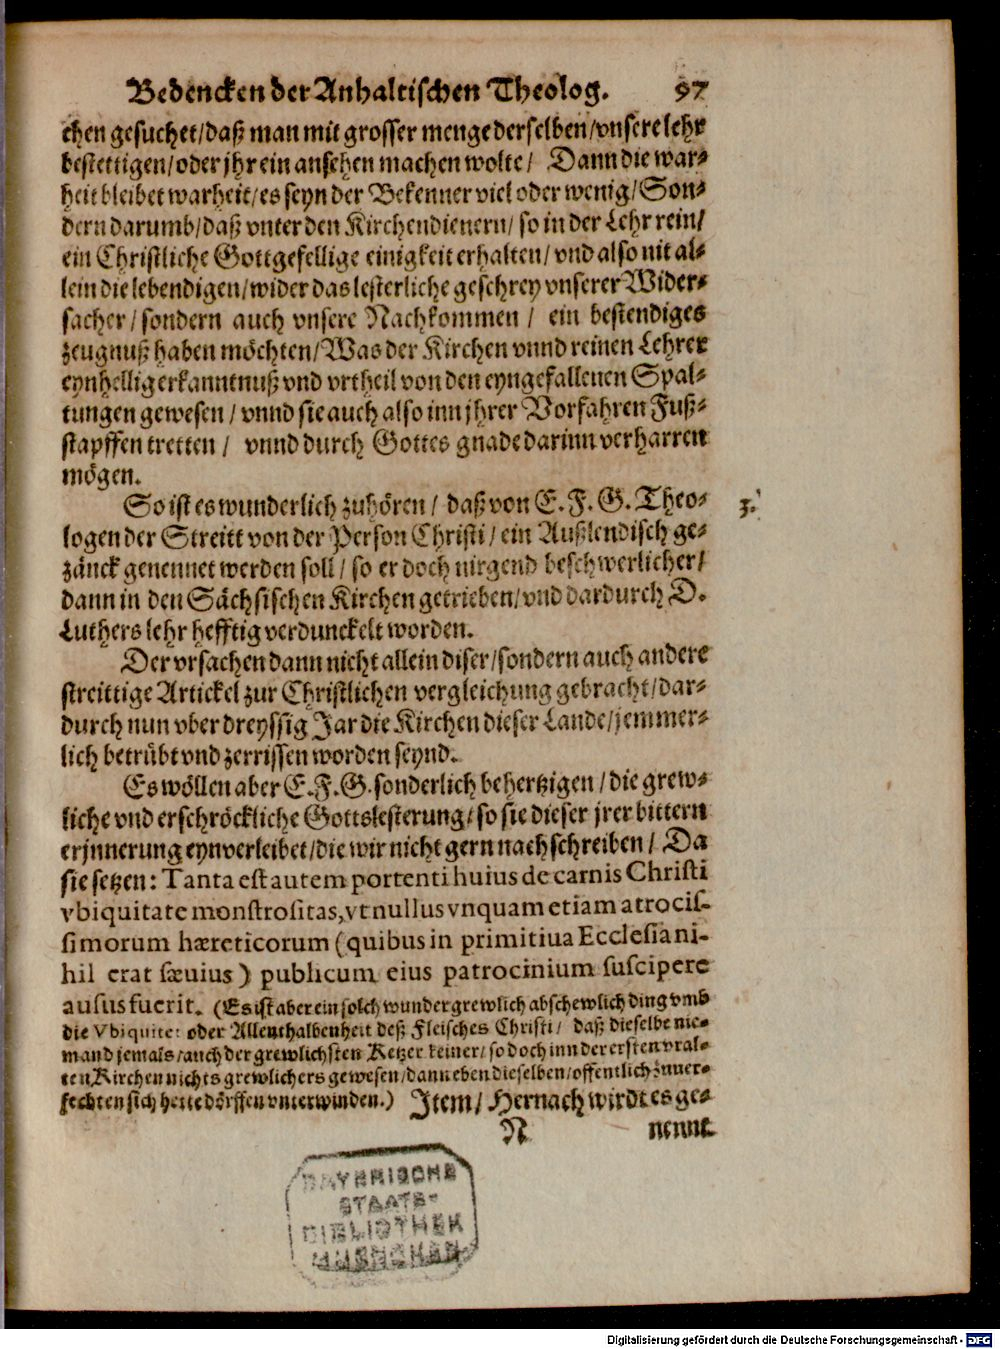 Bedencken der Anhaltischen Theolog. 97
chen gesuchet/daß man mit grosser menge derselben/vnsere lehr
bestettigen/oder jhr ein ansehen machen wolte/ Dann die war-
heit bleibet warheit/es seyn der Bekenner viel oder wenig/Son-
dern darumb/daß vnter den Kirchendienern/ so in der Lehr rein/
ein Christliche Gottgefellige einigkeit erhalten/vnd also nit al-
lein die lebendigen/wider das lesterliche geschrey vnserer Wider-
sacher/sondern auch vnsere Nachkommen/ ein bestendiges
zeugnuß haben möchten/Was der Kirchen vnnd reinen Lehrer
eynhellig erkanntnuß vnd vrtheil von den eyngefallenen Spal-
tungen gewesen/vnnd sie auch also inn jhrer Vorfahren Fuß-
stapffen tretten/ vnnd durch Gottes gnade darinn verharren
mögen.
So ist es wunderlich zuhören/ daß von E. F. G. Theo- 3.
logen der Streitt von der Person Christi/ein Außlendisch ge-
zänck genennet werden soll/so er doch nirgend beschwerlicher/
dann in den Sächsischen Kirchen getrieben/vnd dardurch D.
Luthers lehr hefftig verdunckelt worden.
Der vrsachen dann nicht allein diser/sondern auch andere
streittige Artickel zur Christlichen vergleichung gebracht/dar-
durch nun vber dreyssig Jar die Kirchen dieser Lande/jemmer-
lich betrübt vnd zerrissen worden seynd.
Es wöllen aber E. F. G. sonderlich behertzigen/die grew-
liche vnd erschröckliche Gottslesterung/so sie dieser jrer bittern
erjnnerung eynverleibet/die wir nicht gern nachschreiben/ Da
sie setzen: Tanta est autem portenti huius de carnis Christi
vbiquitate monstrositas, vt nullus vnquam etiam atrocis-
simorum hæreticorum (quibus in primitiua Ecclesia ni-
hil erat sæuius) publicum eius patrocinium suscipere
ausus fuerit. (Es ist aber ein solch wunder grewlich abschewlich ding vmb
die Vbiquitet oder Allenthalbenheit deß Fleisches Christi/ daß dieselbe nie-
mand jemals/auch der grewlichsten Ketzer keiner/so doch inn der ersten vral-
ten Kirchen nichts grewlichers gewesen/dann eben dieselben/offentlich zuuer-
fechten sich hette dörffen vnterwinden.) Jtem/ Hernach wirdt es ge-
N nennt
BAYERISCHE
STAATS-
BIBLIOTHEK
MUENCHEN
Digitalisierung gefördert durch die Deutsche Forschungsgemeinschaft - DFG